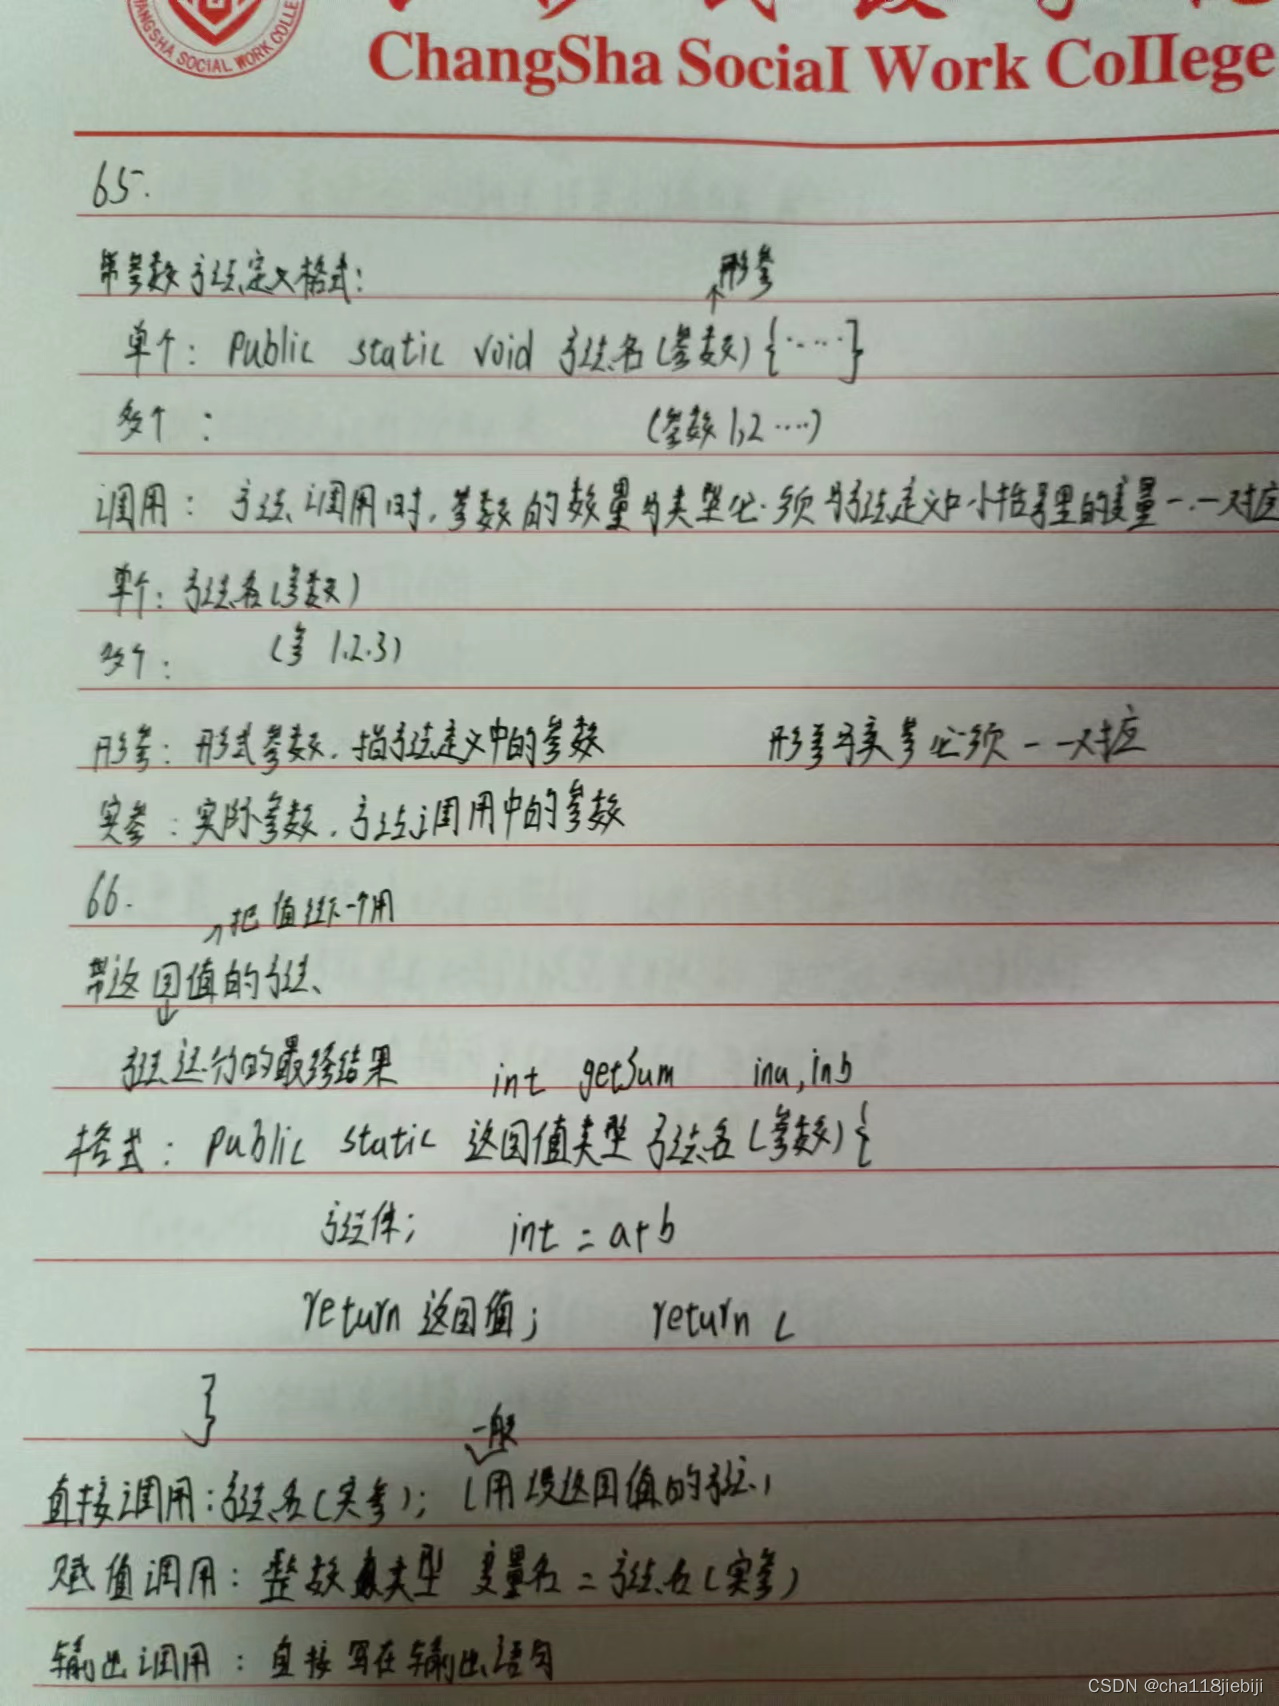 CHANGSHA SOCIAL WORK COLLE
ChangSha Social Work College
65.
带参数方法定义格式:
形参
单个: public static void 方法名(参数){·····}
多个: (参数1,2····)
调用: 方法调用时,参数的数量与类型必须与方法定义中小括号里的变量一一对应
单个: 方法名(参数)
多个: (参 1.2.3)
形参: 形式参数,指方法定义中的参数 形参与实参必须一一对应
实参: 实际参数,方法调用中的参数
66.
把值给下一个用
带返回值的方法、
方法运行的最终结果 int getSum ina,inb
格式: public static 返回值类型 方法名(参数){
方法体; int = a+b
return 返回值; return c
}
一般
直接调用:方法名(实参); (用没返回值的方法)
赋值调用: 整数类型 变量名=方法名(实参)
输出调用: 直接写在输出语句
CSDN @cha118jiebiji